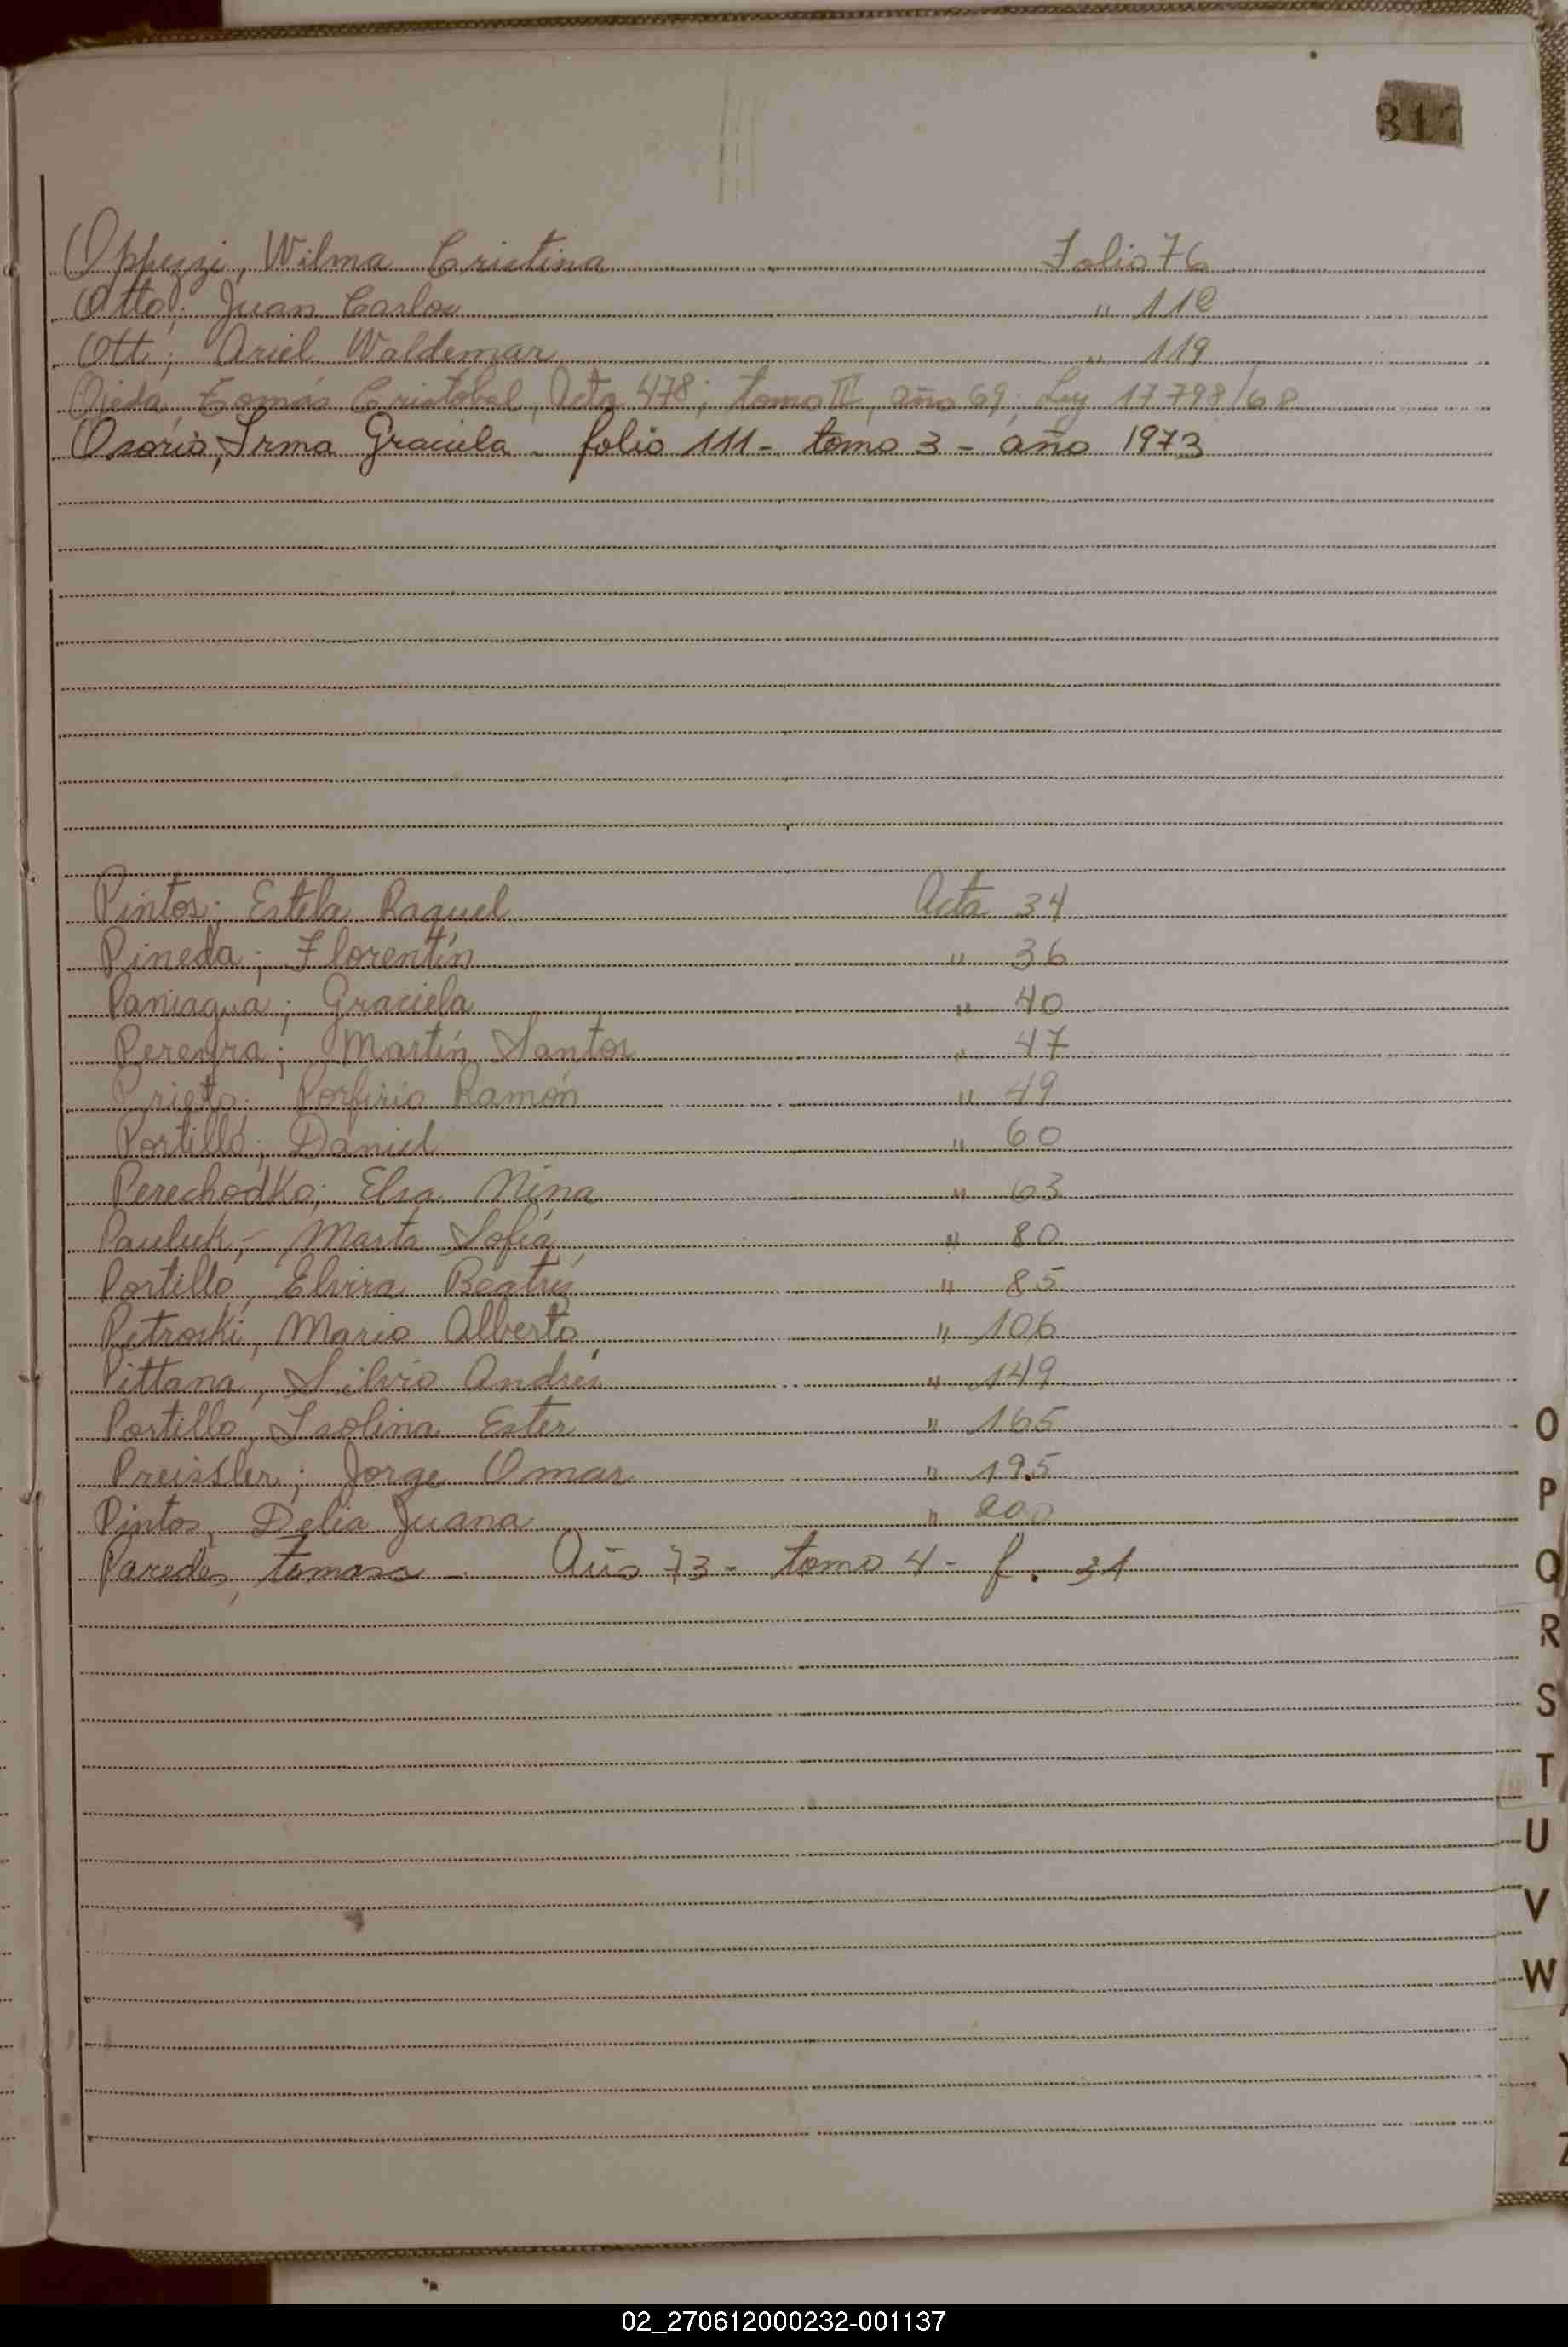 317
Oppezzi, Wilma Cristina Folio 76
Otto; Juan Carlos " 110
Ott; Ariel Waldemar " 119
Ojeda, Tomás Cristóbal, Acta 478; tomo II, año 69; Ley 17.798/68
Osorio, Irma Graciela - folio 111 - tomo 3 - año 1973
Pintos; Estela Raquel Acta 34
Pineda; Florentín " 36
Paniagua; Graciela " 40
Pereyra; Martín Santos " 47
Prieto; Porfirio Ramón " 49
Portillo; Daniel " 60
Perechodko; Elsa Nina " 63
Pauluk,- Marta Sofía " 80
Portillo, Elvira Beatriz " 85
Petroski, Mario Alberto " 106
Pittana, Silvio Andrés " 149
Portillo, Isolina Ester " 165
Preissler; Jorge Omar " 195
Pintos, Delia Juana " 200
Paredes, Tomasa - Año 73 - tomo 4 - f. 31
O
P
Q
R
S
T
U
V
W
Y
Z
02_270612000232-001137